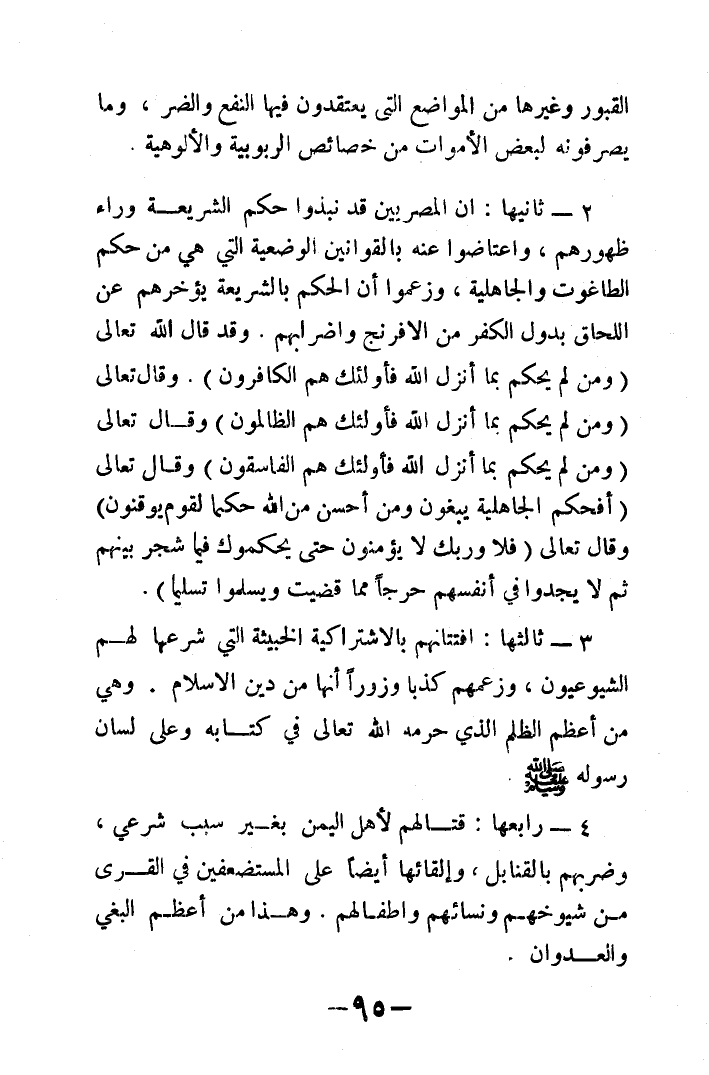 القبور وغيرها من المواضع التي يعتقدون فيها النفع والضر ، وما
يصرفونه لبعض الأموات من خصائص الربوبية والألوهية .
٢ — ثانيها : ان المصريين قد نبذوا حكم الشريعـــة وراء
ظهورهم ، واعتاضوا عنه بالقوانين الوضعية التي هي من حكم
الطاغوت والجاهلية ، وزعموا أن الحكم بالشريعة يؤخرهم عن
اللحاق بدول الكفر من الافرنج واضرابهم . وقد قال الله تعالى
( ومن لم يحكم بما أنزل الله فأولئك هم الكافرون ) . وقال تعالى
( ومن لم يحكم بما أنزل الله فأولئك هم الظالمون ) وقــال تعالى
( ومن لم يحكم بما أنزل الله فأولئك هم الفاسقون ) وقـال تعالى
( أفحكم الجاهلية يبغون ومن أحسن من الله حكما لقوم يوقنون)
وقال تعالى ( فلا وربك لا يؤمنون حتى يحكموك فيما شجر بينهم
ثم لا يجدوا في أنفسهم حرجاً مما قضيت ويسلموا تسليما ) .
٣ — ثالثها : افتتانهم بالاشتراكية الخبيثة التي شرعها لهـــم
الشيوعيون ، وزعمهم كذبا وزوراً أنها من دين الاسلام . وهي
من أعظم الظلم الذي حرمه الله تعالى في كتـــابه وعلى لسان
رسوله ﷺ .
٤ — رابعها : قتـــالهم لأهل اليمن بغـــير سبب شرعي ،
وضربهم بالقنابل ، وإلقائها أيضاً على المستضعفين في القـــرى
مـن شيوخهـم ونسائهم واطفـالهم . وهـــذا من أعظـم البغي
والعـــدوان .
— ٩٥ —